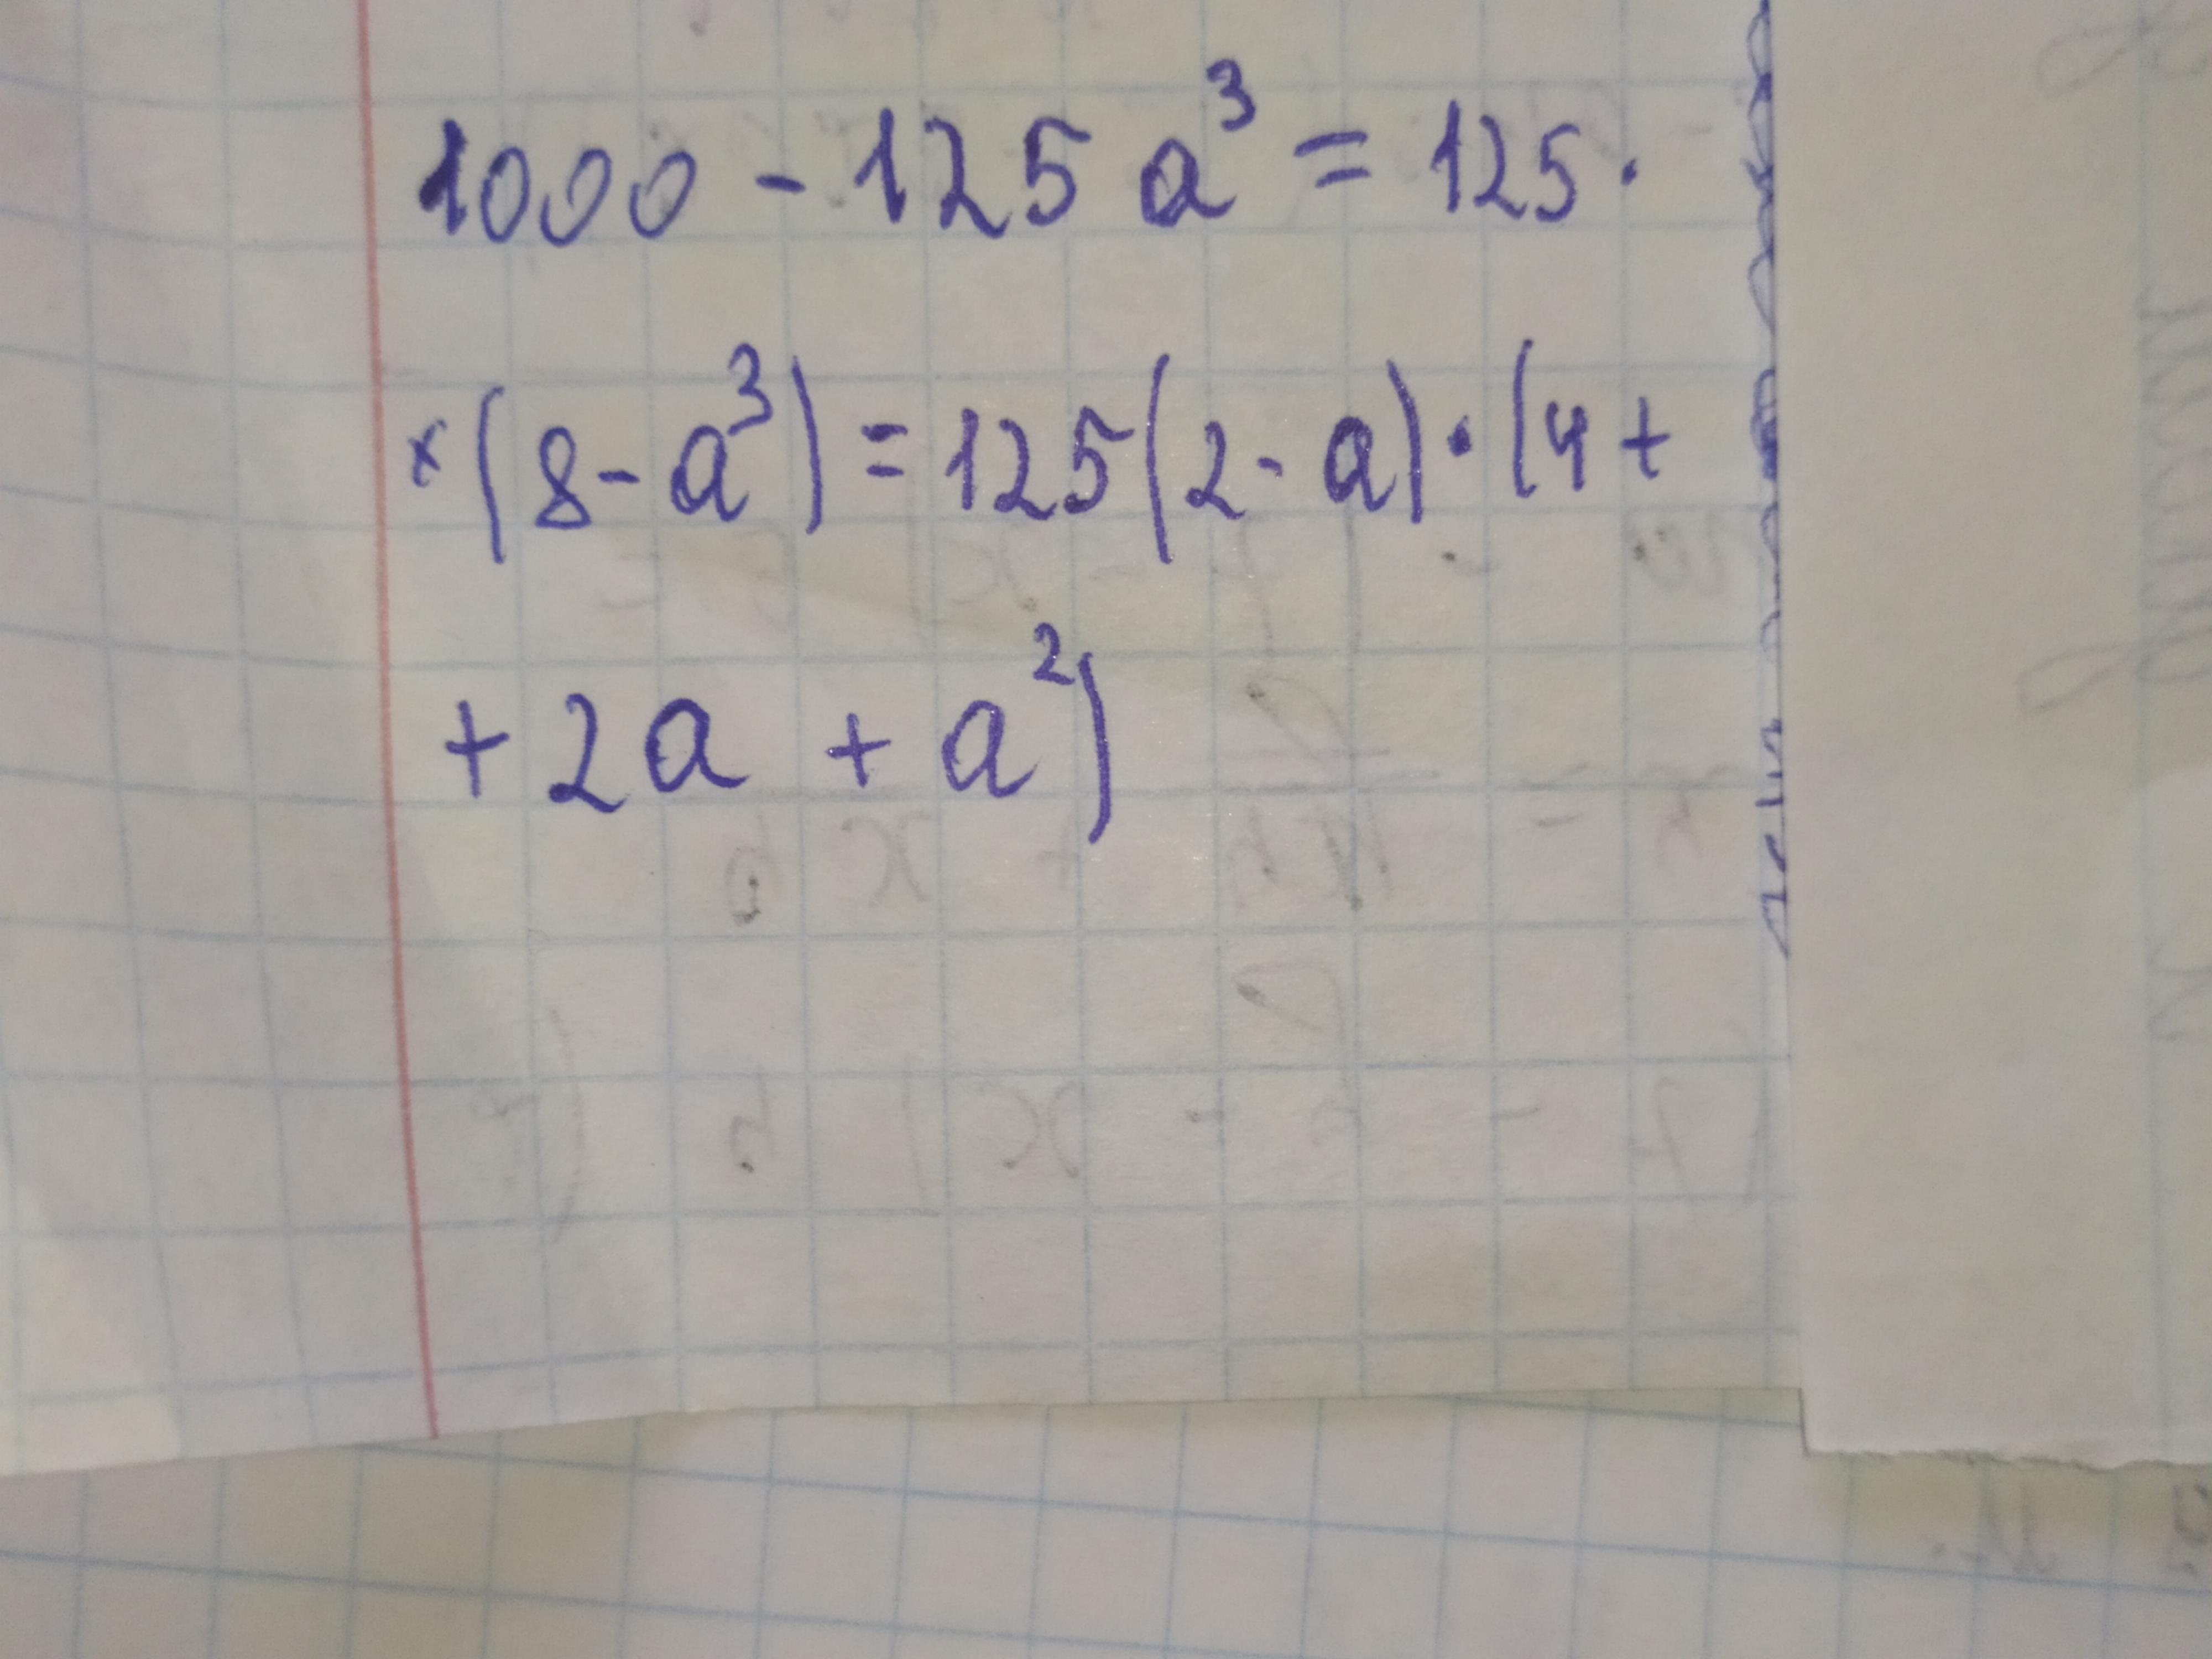 1000 - 125 a³ = 125 ·
× (8 - a³) = 125 (2 - a) · (4 +
+ 2a + a²)